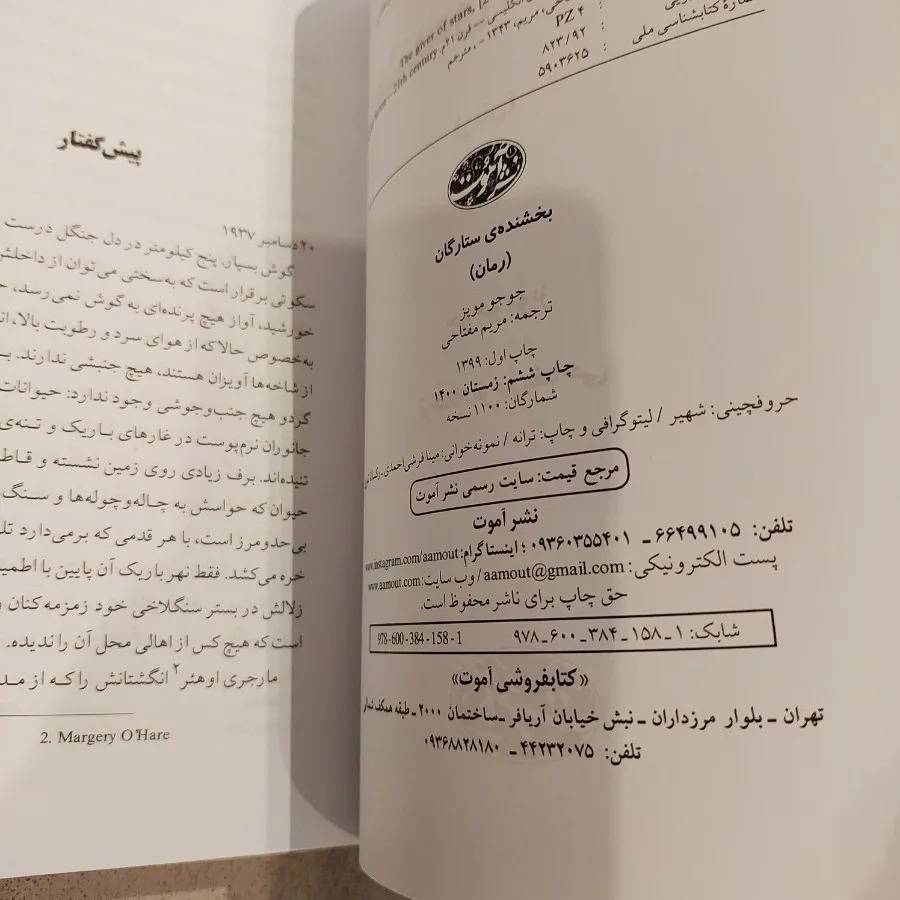 The giver of stars
مریم، ۱۳۴۳ - ، مترجم
PZ ۴
۸۲۳/۹۲
۵۹۰۳۶۲۵
کتابشناسی ملی
نشر آموت
بخشنده‌ی ستارگان
(رمان)
جوجو مویز
ترجمه: مریم مفتاحی
چاپ اول: ۱۳۹۹
چاپ ششم: زمستان ۱۴۰۰
شمارگان: ۱۱۰۰ نسخه
حروفچینی: شهیر / لیتوگرافی و چاپ: ترانه / نمونه‌خوانی: مینا فرشی‌احمدی -
مرجع قیمت: سایت رسمی نشر آموت
نشر آموت
تلفن: ۶۶۴۹۹۱۰۵ - ۰۹۳۶۰۳۵۵۴۰۱ ؛ اینستاگرام: www.instagram.com/aamout
پست الکترونیکی: aamout@gmail.com / وب سایت: www.aamout.com
حق چاپ برای ناشر محفوظ است.
شابک: ۱ - ۱۵۸ - ۳۸۴ - ۶۰۰ - ۹۷۸ 978-600-384-158-1
«کتابفروشی آموت»
تهران - بلوار مرزداران - نبش خیابان آریافر - ساختمان ۲۰۰۰ - طبقه همکف
تلفن: ۴۴۲۳۲۰۷۵ - ۰۹۳۶۸۸۲۸۱۸۰
پیش‌گفتار
۲۰ دسامبر ۱۹۳۷
گوش بسپار. پنج کیلومتر در دل جنگل درست
سکوتی برقرار است که به‌سختی می‌توان از داخلش
خورشید، آواز هیچ پرنده‌ای به گوش نمی‌رسد،
به‌خصوص حالا که از هوای سرد و رطوبت بالا،
از شاخه‌ها آویزان هستند، هیچ جنبشی ندارند.
گردو هیچ جنب‌وجوشی وجود ندارد: حیوانات
جانوران نرم‌پوست در غارهای باریک و تنه‌ی
تنیده‌اند. برف زیادی روی زمین نشسته و
حیوان که حواسش به چاله‌وچوله‌ها و
بی‌حدومرز است، با هر قدمی که برمی‌دارد
خره می‌کشد. فقط نهر باریک آن پایین با
زلالش در بستر سنگلاخی خود زمزمه‌کنان
است که هیچ‌کس از اهالی محل آن را ندیده.
مارجری اوهئر۲ انگشتانش را که از
2. Margery O'Hare